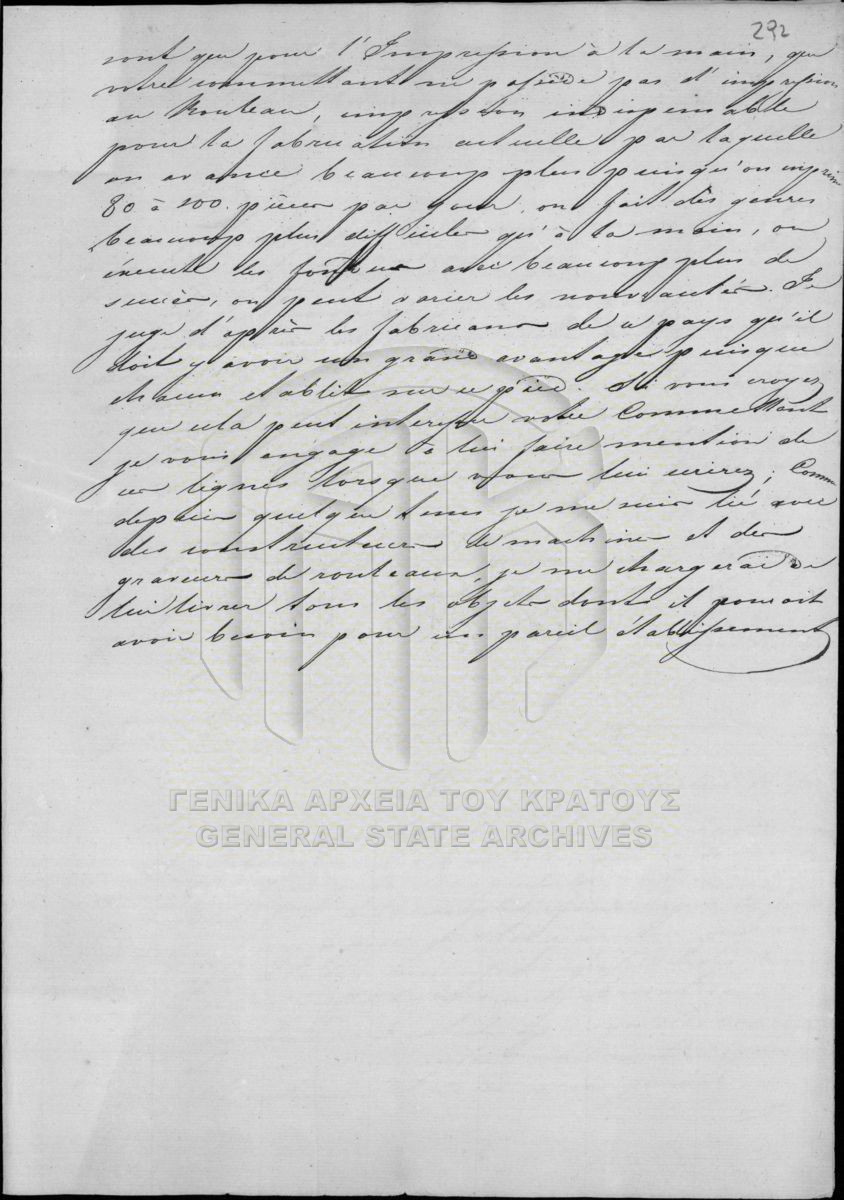 292
sont que pour l'Impression à la main, que
votre commettant ne possède pas d'impression
au Rouleau, impression indispensable
pour la fabrication actuelle par laquelle
on avance beaucoup plus puisqu'on imprime
80 à 100 pièces par jour, on fait des genres
beaucoup plus difficiles qu'à la main, on
exécute les fondus avec beaucoup plus de
succès, on peut varier les nouveautés. Je
juge d'après les fabricans de ce pays qu'il
doit y avoir un grand avantage puisque
chacun etablit sur ce pied. Si vous croyez
que cela peut interesser votre Commettant
je vous engage à lui faire mention de
ces lignes lorsque vous lui ecrirez; Comme
depuis quelque tems je me suis lié avec
des constructeurs de machines et des
graveurs de rouleaux, je me chargerai de
lui livrer tous les objets dont il pourroit
avoir besoin pour un pareil établissement
ΓΕΝΙΚΑ ΑΡΧΕΙΑ ΤΟΥ ΚΡΑΤΟΥΣ
GENERAL STATE ARCHIVES